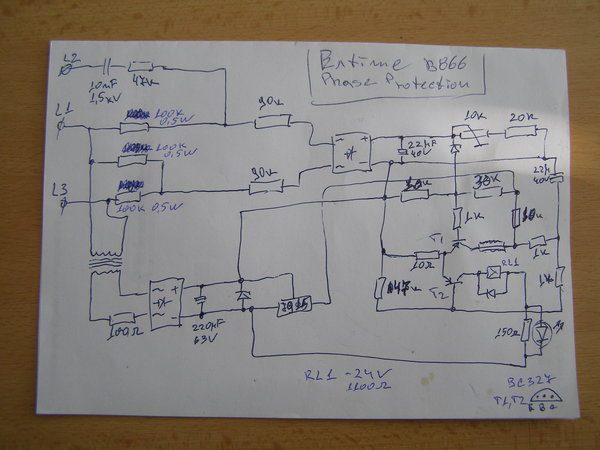 Entime BB66
Phase Protection
L2
10nF
1,5kV
47K
L1
100K
0,5W
100K
0,5W
L3
100K 0,5W
90K
90K
~ +
~ -
22µF
40V
10K
20K
22µ
40V
30K
1K
T1
10Ω
T2
1K
RL1
1K
150Ω
~ +
~ -
100Ω
220µF
63V
RL1 -24V
1100Ω
BC327
T1,T2
E B C